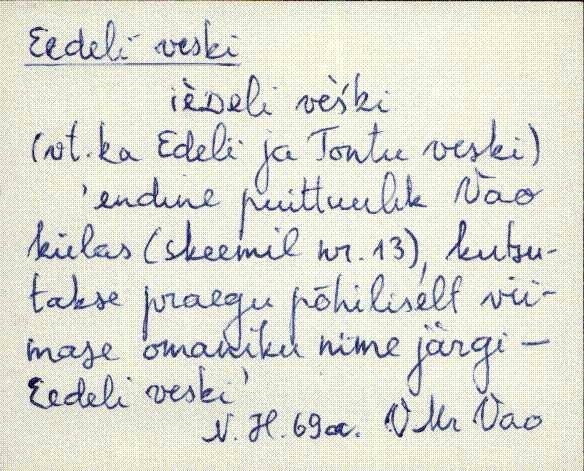 Eedeli veski
ièᴅeli vèśki
(vt. ka Edeli ja Tontu veski)
'endine puittuulik Vao
külas (skeemil nr. 13), kutsu-
takse praegu põhiliselt vii-
mase omaniku nime järgi –
Eedeli veski'
N. H. 69a. VMr Vao